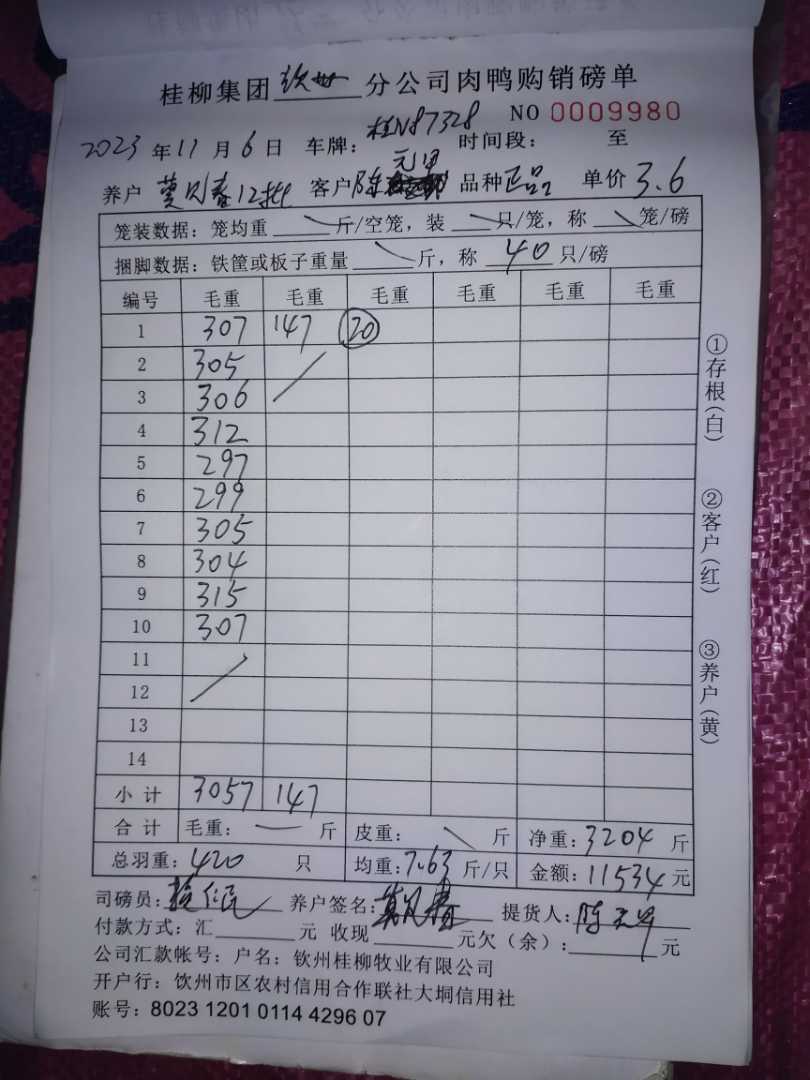 桂柳集团钦州分公司肉鸭购销磅单
NO 0009980
2023年11月6日 车牌：桂N87328 时间段： 至
养户 莫 春12批 客户陈元军 品种正品 单价3.6
笼装数据：笼均重 斤/空笼，装 只/笼，称 笼/磅
捆脚数据：铁筐或板子重量 斤，称 40 只/磅
编号 毛重 毛重 毛重 毛重 毛重 毛重
1 307 147 20
2 305
3 306
4 312
5 297
6 299
7 305
8 304
9 315
10 307
11
12
13
14
小计 3057 147
合计 毛重： 斤 皮重： 斤 净重：3204 斤
总羽重：420 只 均重：7.63 斤/只 金额：11534元
司磅员： 养户签名： 提货人：陈
付款方式：汇 元 收现 元欠（余）： 元
公司汇款帐号：户名：钦州桂柳牧业有限公司
开户行：饮州市区农村信用合作联社大垌信用社
账号：8023 1201 0114 4296 07
①存根（白）
②客户（红）
③养户（黄）